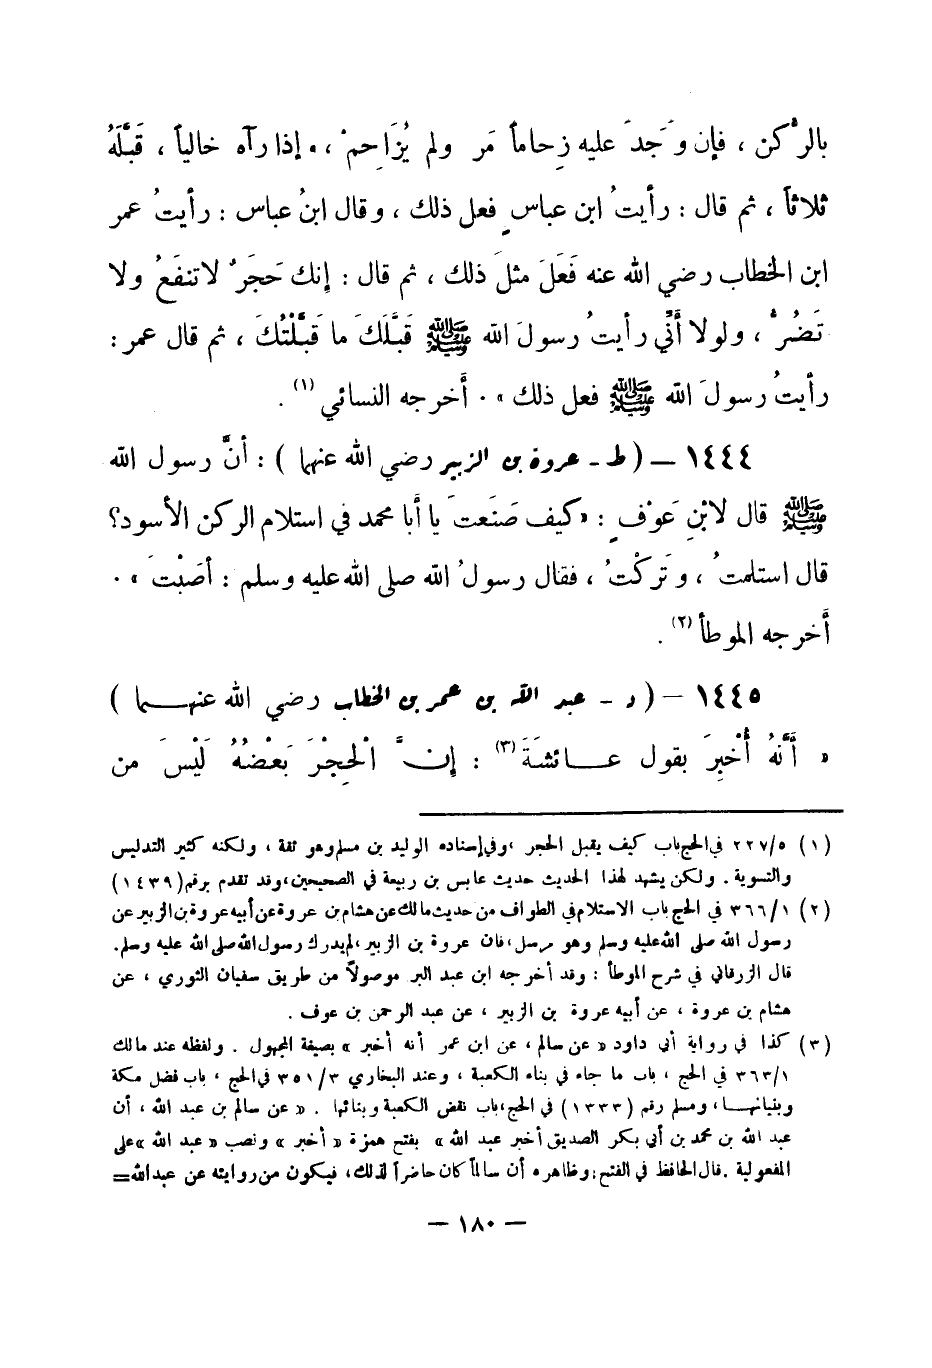 بالرُّكن ، فإن وَجَدَ عليه زِحاماً مَر ولم يُزَاحِمْ ، وإذا رآه خالياً ، قَبَّلَهُ
ثلاثاً ، ثم قال : رأيتُ ابن عباسٍ فعل ذلك ، وقال ابنُ عباس : رأيتُ عمر
ابن الخطاب رضي الله عنه فَعَلَ مثلَ ذلك ، ثم قال : إنك حَجَرٌ لاتنفَعُ ولا
تَضُرُّ ، ولولا أنَّي رأيتُ رسولَ الله ﷺ قَبَّلَكَ ما قَبَّلْتُكَ ، ثم قال عمر :
رأيتُ رسولَ الله ﷺ فعل ذلك » . أخرجه النسائي (١) .
١٤٤٤ – ( ط - عروة بن الزبير رضي الله عنهما ) : أنَّ رسول الله
ﷺ قال لابْنِ عَوْفٍ : «كيف صَنَعتَ يا أبا محمد في استلام الركن الأسود؟
قال استلمتُ ، وتَركْتُ ، فقال رسولُ الله صلى الله عليه وسلم : أصَبْتَ » .
أخرجه الموطأ (٢) .
١٤٤٥ – ( د - عبد الله بن عمر بن الخطاب رضي الله عنهما )
« أنَّهُ أُخْبِرَ بقول عائشةَ (٣) : إنَّ الْحِجْرَ بَعْضُهُ لَيْسَ من
(١) ٢٢٧/٥ في الحج باب كيف يقبل الحجر ، وفي إسناده الوليد بن مسلم وهو ثقة ، ولكنه كثير التدليس
والتسوية . ولكن يشهد لهذا الحديث حديث عابس بن ربيعة في الصحيحين، وقد تقدم برقم (١٤٣٩)
(٢) ٣٦٦/١ في الحج باب الاستلام في الطواف من حديث مالك عن هشام بن عروة عن أبيه عروة بن الزبير عن
رسول الله صلى الله عليه وسلم وهو مرسل ، فان عروة بن الزبير ، لم يدرك رسول الله صلى الله عليه وسلم.
قال الزرقاني في شرح الموطأ : وقد أخرجه ابن عبد البر موصولاً من طريق سفيان الثوري ، عن
هشام بن عروة ، عن أبيه عروة بن الزبير ، عن عبد الرحمن بن عوف .
(٣) كذا في رواية أبي داود « عن سالم ، عن ابن عمر أنه أخبر » بصيغة المجهول . ولفظه عند مالك
٣٦٣/١ في الحج ، باب ما جاء في بناء الكعبة ، وعند البخاري ٣٥١/٣ في الحج ، باب فضل مكة
وبنيانها ، ومسلم رقم (١٣٣٣) في الحج ، باب نقض الكعبة وبنائها . « عن سالم بن عبد الله ، أن
عبد الله بن محمد بن أبي بكر الصديق أخبر عبد الله » بفتح همزة « أخبر » ونصب « عبد الله » على
المفعولية . قال الحافظ في الفتح : وظاهره أن سالماً كان حاضراً لذلك، فيكون من روايته عن عبد الله =
– ١٨٠ –